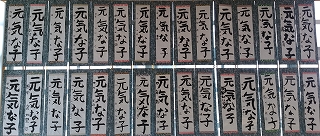 元気な子
元気な子
元気な子
元気な子
元気な子
元気な子
元気な子
元気な子
元気な子
元気な子
元気な子
元気な子
元気な子
元気な子
元気な子
元気な子
元気な子
元気な子
元気な子
元気な子
元気な子
元気な子
元気な子
元気な子